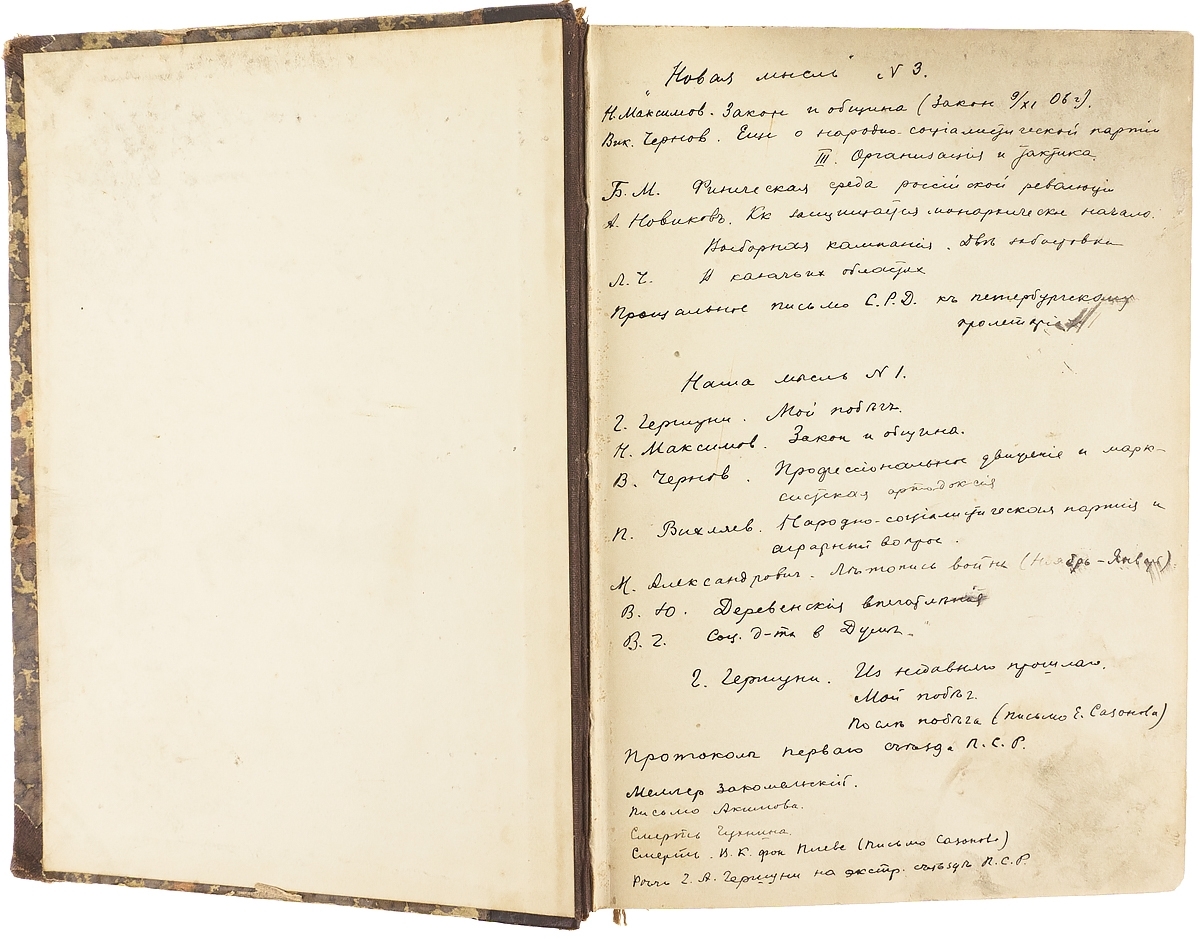 „Новая мысль" N 3.
Н. Максимов. Закон и община (Закон 9/XI 06 г).
Вик. Чернов. Еще о народно-соціалистической партіи
III. Организація и тактика.
Б. М. Финическая среда россійской революціи
А. Новиковъ. Кк защищается монархическе начало.
Выборная кампанія. Двѣ забастовки
Л. Ч. В казачьих областях
Прощальное письмо С. Р. Д. къ петербургскому
пролетарі
Наша мысль N 1.
Г. Гершуни. Мой побѣгъ.
Н. Максимов. Закон и община.
В. Чернов. Профессіональное движеніе и марк-
систская ортодоксія
П. Вихляев. Народно-соціалистическая партія и
аграрный вопрос.
М. Александрович. Лѣтопись войны (Ноябрь – Январь)
В. Ю. Деревенскія впечатлѣнія
В. Г. Соц. д-ты в Думѣ.
Г. Гершуни. Из недавняго прошлаго.
Мой побѣг.
Послѣ побѣга (письмо Е. Сазонова)
Протоколы перваго съѣзда П. С. Р.
Меллер Закомельскій.
Письмо Акимова.
Смерть Чухнина.
Смерть В. К. фон Плеве (письмо Сазонова)
Рѣчь Г. А. Гершуни на экстр. съѣздѣ П. С. Р.